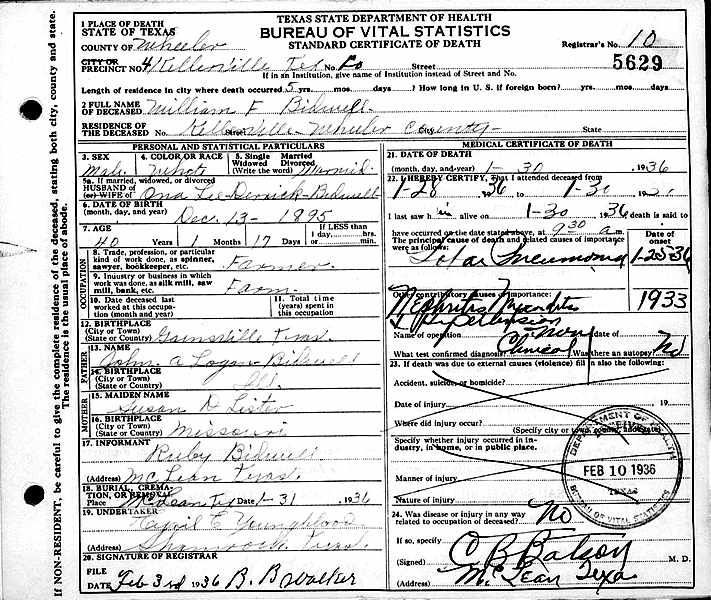 TEXAS STATE DEPARTMENT OF HEALTH
BUREAU OF VITAL STATISTICS
STANDARD CERTIFICATE OF DEATH
1 PLACE OF DEATH
STATE OF TEXAS
COUNTY OF Wheeler
Registrar's No. 10
5629
CITY OR
PRECINCT NO. 4 Kellerville Tex No. Street
If in an Institution, give name of Institution instead of Street and No.
Length of residence in city where death occurred 5 yrs. mos. days? How long in U. S. if foreign born? yrs. mos. days?
2 FULL NAME
OF DECEASED William F Bidwell
RESIDENCE OF
THE DECEASED No. Kellerville - Wheeler City County - State
PERSONAL AND STATISTICAL PARTICULARS
3. SEX 4. COLOR OR RACE 5. Single Married Widowed Divorced (Write the word)
Male White Married
5a. If married, widowed, or divorced
HUSBAND OF
(or) WIFE OF Ona Lee Derrick - Bidwell
6. DATE OF BIRTH
(month, day, and year) Dec. 13 - 1895
7. AGE If LESS than
1 day, hrs.
or min.
40 Years 1 Months 17 Days
8. Trade, profession, or particular
kind of work done, as spinner,
sawyer, bookkeeper, etc. Farmer
9. Industry or business in which
work was done, as silk mill, saw
mill, bank, etc. Farm
10. Date deceased last worked at this occupation (month and year)
11. Total time (years) spent in this occupation
12. BIRTHPLACE
(City or Town)
(State or County) Gainsville Texas
FATHER
13. NAME
John A Logan - Bidwell
14. BIRTHPLACE
(City or Town)
(State or County) Ill.
MOTHER
15. MAIDEN NAME
Susan D Lister
16. BIRTHPLACE
(City or Town)
(State or Country) Missouri
17. INFORMANT
Ruby Bidwell
(Address) McLean Texas.
18. BURIAL, CREMATION, OR REMOVAL
Place McLean Tex Date 1-31 1936
19. UNDERTAKER
Youngblood
(Address) Shamrock, Texas.
20. SIGNATURE OF REGISTRAR
FILE
DATE Feb 3rd 1936 B. B Walker
MEDICAL CERTIFICATE OF DEATH
21. DATE OF DEATH
(month, day, and year) 1-30 1936
22. I HEREBY CERTIFY, That I attended deceased from
1-28 1936 to 1-30 1936
I last saw him alive on 1-30 1936 death is said to
have occurred on the date stated above, at 9 30 a m.
The principal cause of death and related causes of importance
were as follows: Date of onset
Lobar Pneumonia 1-25-36
Other contributory causes of importance:
Nephritis 1933
Hypertension
Name of operation None date of
What test confirmed diagnosis? Clinical Was there an autopsy? No
23. If death was due to external causes (violence) fill in also the following:
Accident, suicide, or homicide?
Date of injury 19
Where did injury occur?
(Specify city or town, county, and State)
Specify whether injury occurred in industry, in home, or in public place.
Manner of injury
Nature of injury
DEPARTMENT OF HEALTH
RECEIVED
FEB 10 1936
TEXAS
BUREAU OF VITAL STATISTICS
24. Was disease or injury in any way
related to occupation of deceased? No
If so, specify
(Signed) C B Batson M. D.
(Address) McLean Texas
If NON-RESIDENT, be careful to give the complete residence of the deceased, stating both city, county and state.
The residence is the usual place of abode.